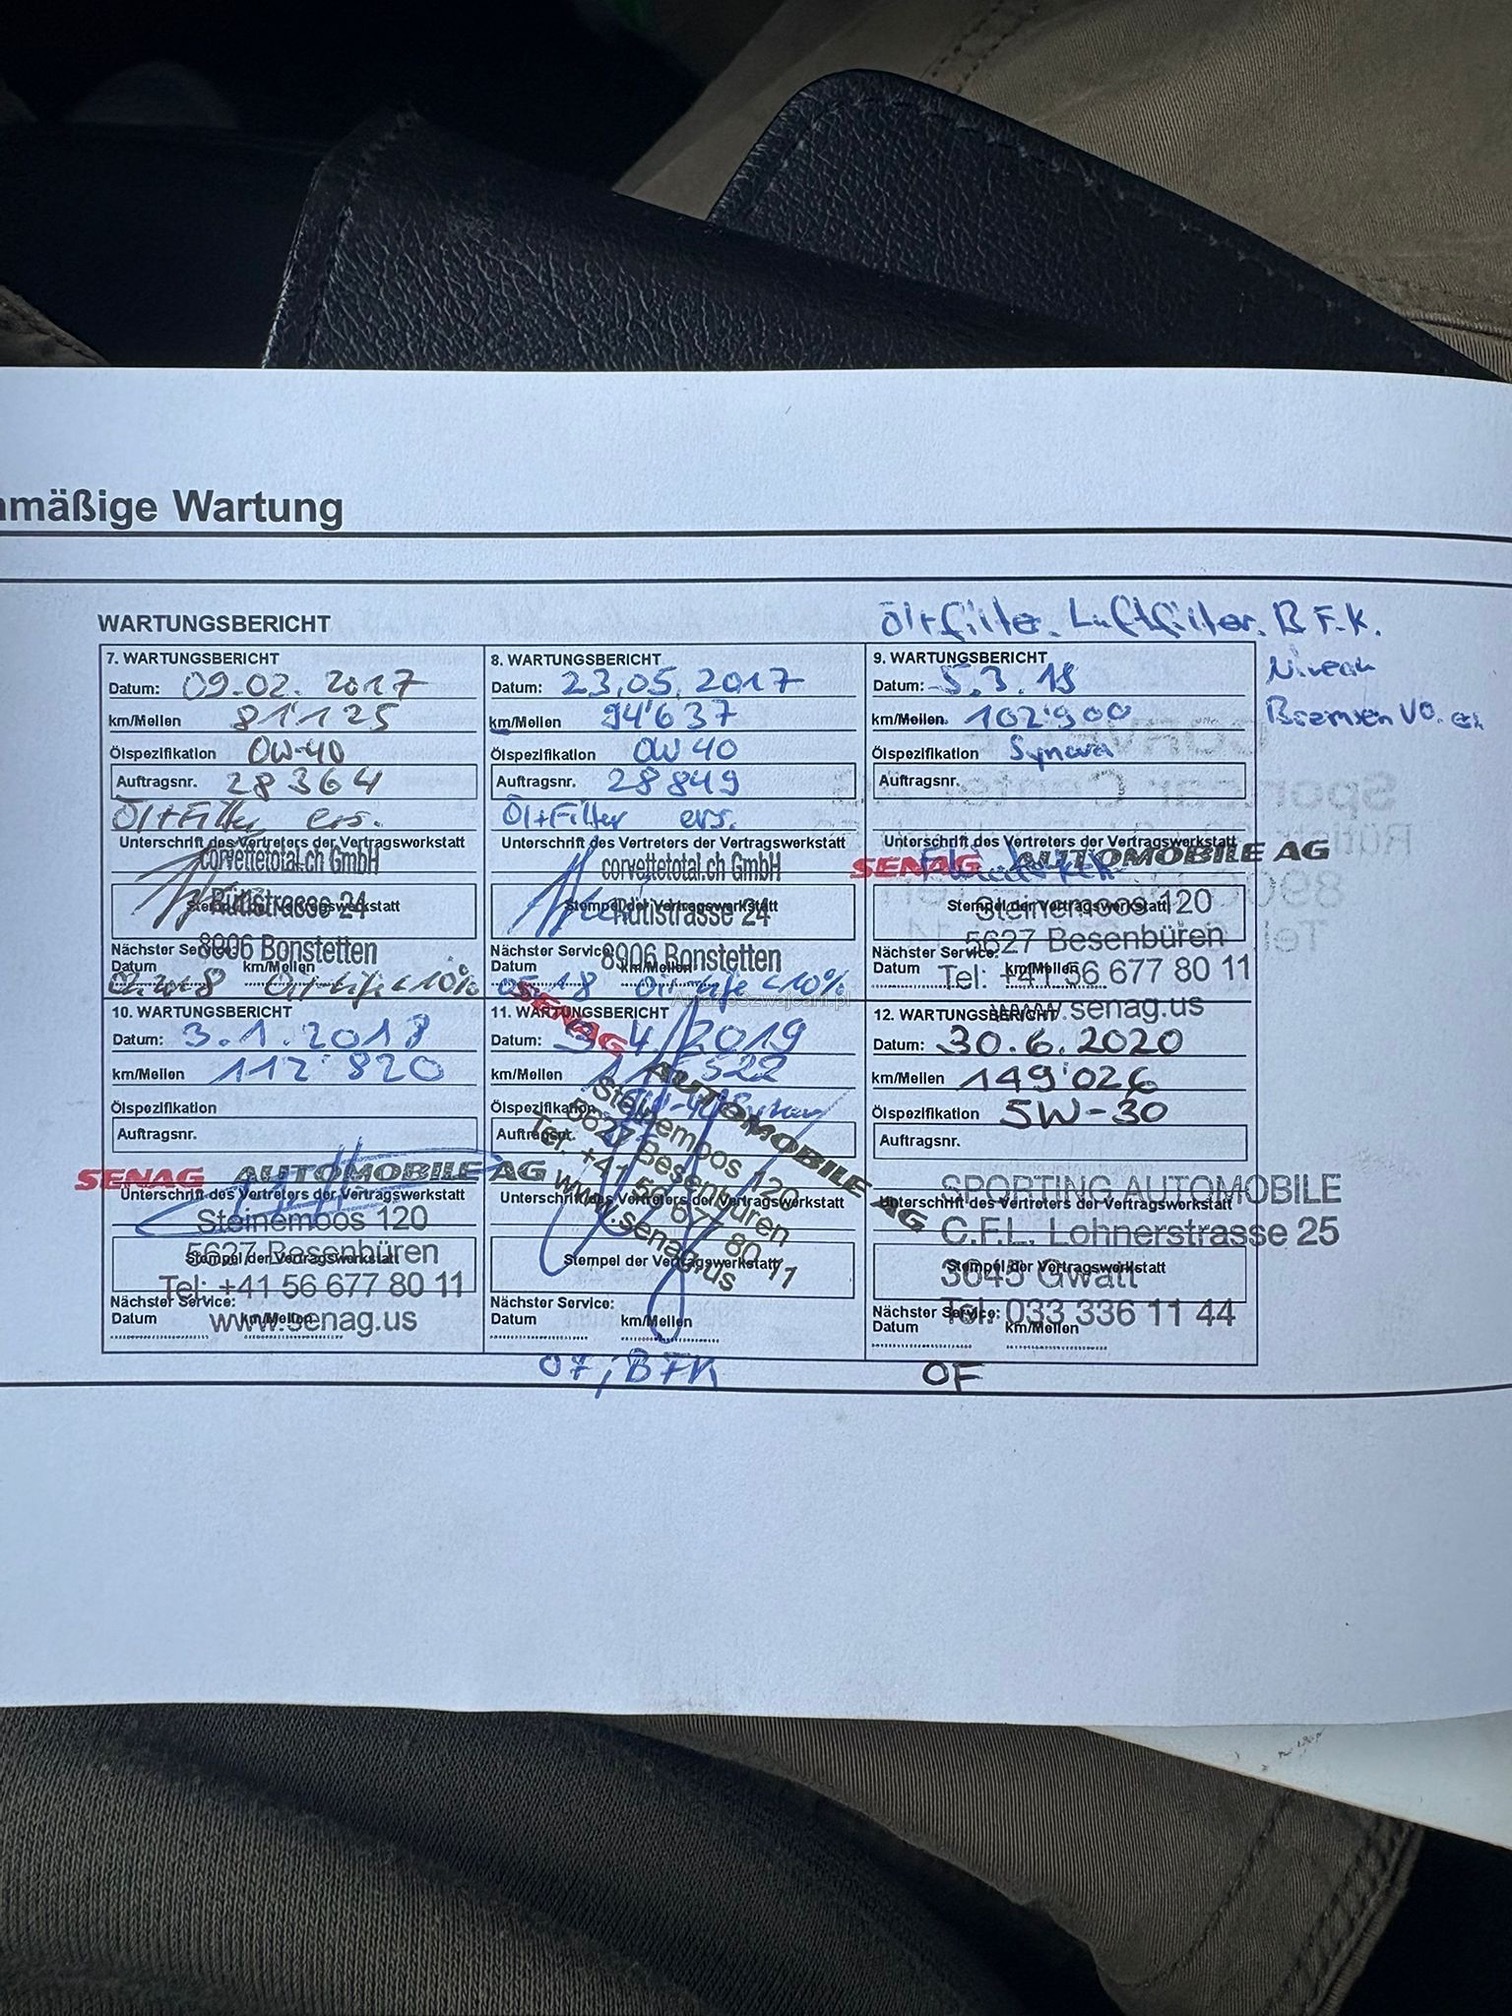 nmäßige Wartung
WARTUNGSBERICHT
Öl+Filter. Luftfilter. B F.K.
Niveau
Bremsen VO.
7. WARTUNGSBERICHT
Datum: 09.02.2017
km/Meilen 81'125
Ölspezifikation 0W-40
Auftragsnr. 28364
Öl+Filter ers.
Unterschrift des Vertreters der Vertragswerkstatt
corvettetotal.ch GmbH
Rütistrasse 24
Stempel der Vertragswerkstatt
8906 Bonstetten
Nächster Service:
Datum km/Meilen
Oil Life <10%
8. WARTUNGSBERICHT
Datum: 23.05.2017
km/Meilen 94'637
Ölspezifikation 0W40
Auftragsnr. 28849
Öl+Filter ers.
Unterschrift des Vertreters der Vertragswerkstatt
corvettetotal.ch GmbH
Stempel der Vertragswerkstatt
Rütistrasse 24
8906 Bonstetten
Nächster Service:
Datum km/Meilen
05.18 Oil Life <10%
AmazeSzwajcarii.pl
9. WARTUNGSBERICHT
Datum: 5.3.18
km/Meilen. 102'900
Ölspezifikation Synova
Auftragsnr.
Unterschrift des Vertreters der Vertragswerkstatt
SENAG AUTOMOBILE AG
Stempel der Vertragswerkstatt
Steinemoos 120
5627 Besenbüren
Nächster Service:
Datum km/Meilen
Tel: +41 56 677 80 11
www.senag.us
10. WARTUNGSBERICHT
Datum: 3.1.2018
km/Meilen 112'820
Ölspezifikation
Auftragsnr.
SENAG AUTOMOBILE AG
Unterschrift des Vertreters der Vertragswerkstatt
Steinemoos 120
5627 Besenbüren
Stempel der Vertragswerkstatt
Tel: +41 56 677 80 11
Nächster Service:
Datum km/Meilen
www.senag.us
11. WARTUNGSBERICHT
Datum: 9.4.2019
km/Meilen
Ölspezifikation
Auftragsnr.
SENAG AUTOMOBILE AG
Steinemoos 120
5627 Besenbüren
Tel: +41 56 677 80 11
www.senag.us
Unterschrift des Vertreters der Vertragswerkstatt
Stempel der Vertragswerkstatt
Nächster Service:
Datum km/Meilen
OF, BFK
12. WARTUNGSBERICHT
Datum: 30.6.2020
km/Meilen 149'026
Ölspezifikation 5W-30
Auftragsnr.
SPORTING AUTOMOBILE
Unterschrift des Vertreters der Vertragswerkstatt
C.F.L. Lohnerstrasse 25
Stempel der Vertragswerkstatt
3645 Gwatt
Nächster Service:
Tel. 033 336 11 44
Datum km/Meilen
OF